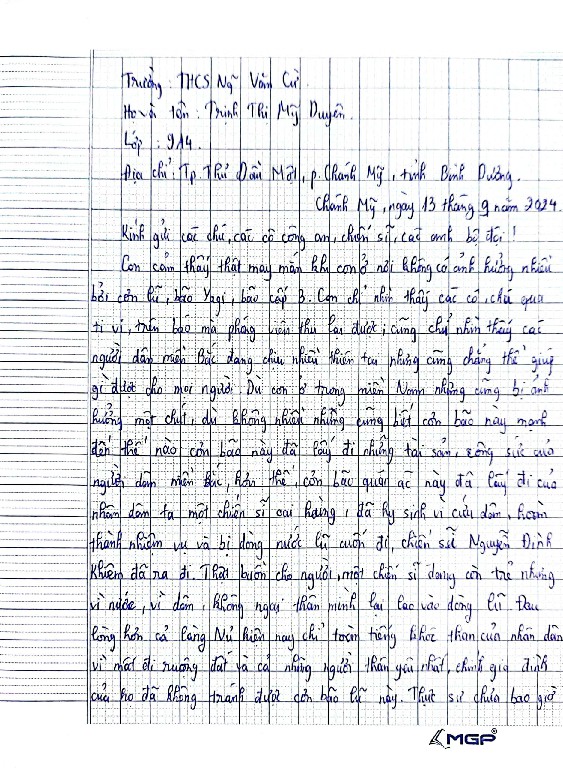 Trường: THCS Ngô Văn Cừ.
Họ và tên: Trịnh Thị Mỹ Duyên.
Lớp: 9A4.
Địa chỉ: Tp. Thủ Dầu Một, p. Chánh Mỹ, tỉnh Bình Dương.
Chánh Mỹ, ngày 13 tháng 9 năm 2024
Kính gửi các chú, các cô công an, chiến sĩ, các anh bộ đội!
Con cảm thấy thật may mắn khi con ở nơi không có ảnh hưởng nhiều
bởi cơn lũ, bão Yagi, bão cấp 3. Con chỉ nhìn thấy các cô, chú qua
ti vi, trên báo mà phóng viên thu lại được, cũng chỉ nhìn thấy các
người dân miền Bắc đang chịu nhiều thiên tai nhưng cũng chẳng thể giúp
gì được cho mọi người. Dù con ở trong miền Nam nhưng cũng bị ảnh
hưởng một chút, dù không nhiều nhưng cũng biết cơn bão này mạnh
đến thế nào cơn bão này đã lấy đi những tài sản, công sức của
người dân miền Bắc, hơn thế, cơn bão quái ác này đã lấy đi của
nhân dân ta một chiến sĩ oai hùng, đã hy sinh vì cứu dân, hoàn
thành nhiệm vụ và bị dòng nước lũ cuốn đi, chiến sĩ Nguyễn Đình
Khiêm đã ra đi. Thật buồn cho người, một chiến sĩ đang còn trẻ nhưng
vì nước, vì dân, không ngại thân mình lại lao vào dòng lũ. Đau
lòng hơn cả làng Nủ hiện nay chỉ toàn tiếng khóc than của nhân dân
vì mất đi ruộng đất và cả những người thân yêu nhất, chính gia đình
của họ đã không tránh được cơn bão lũ này. Thực sự chưa bao giờ
MGP